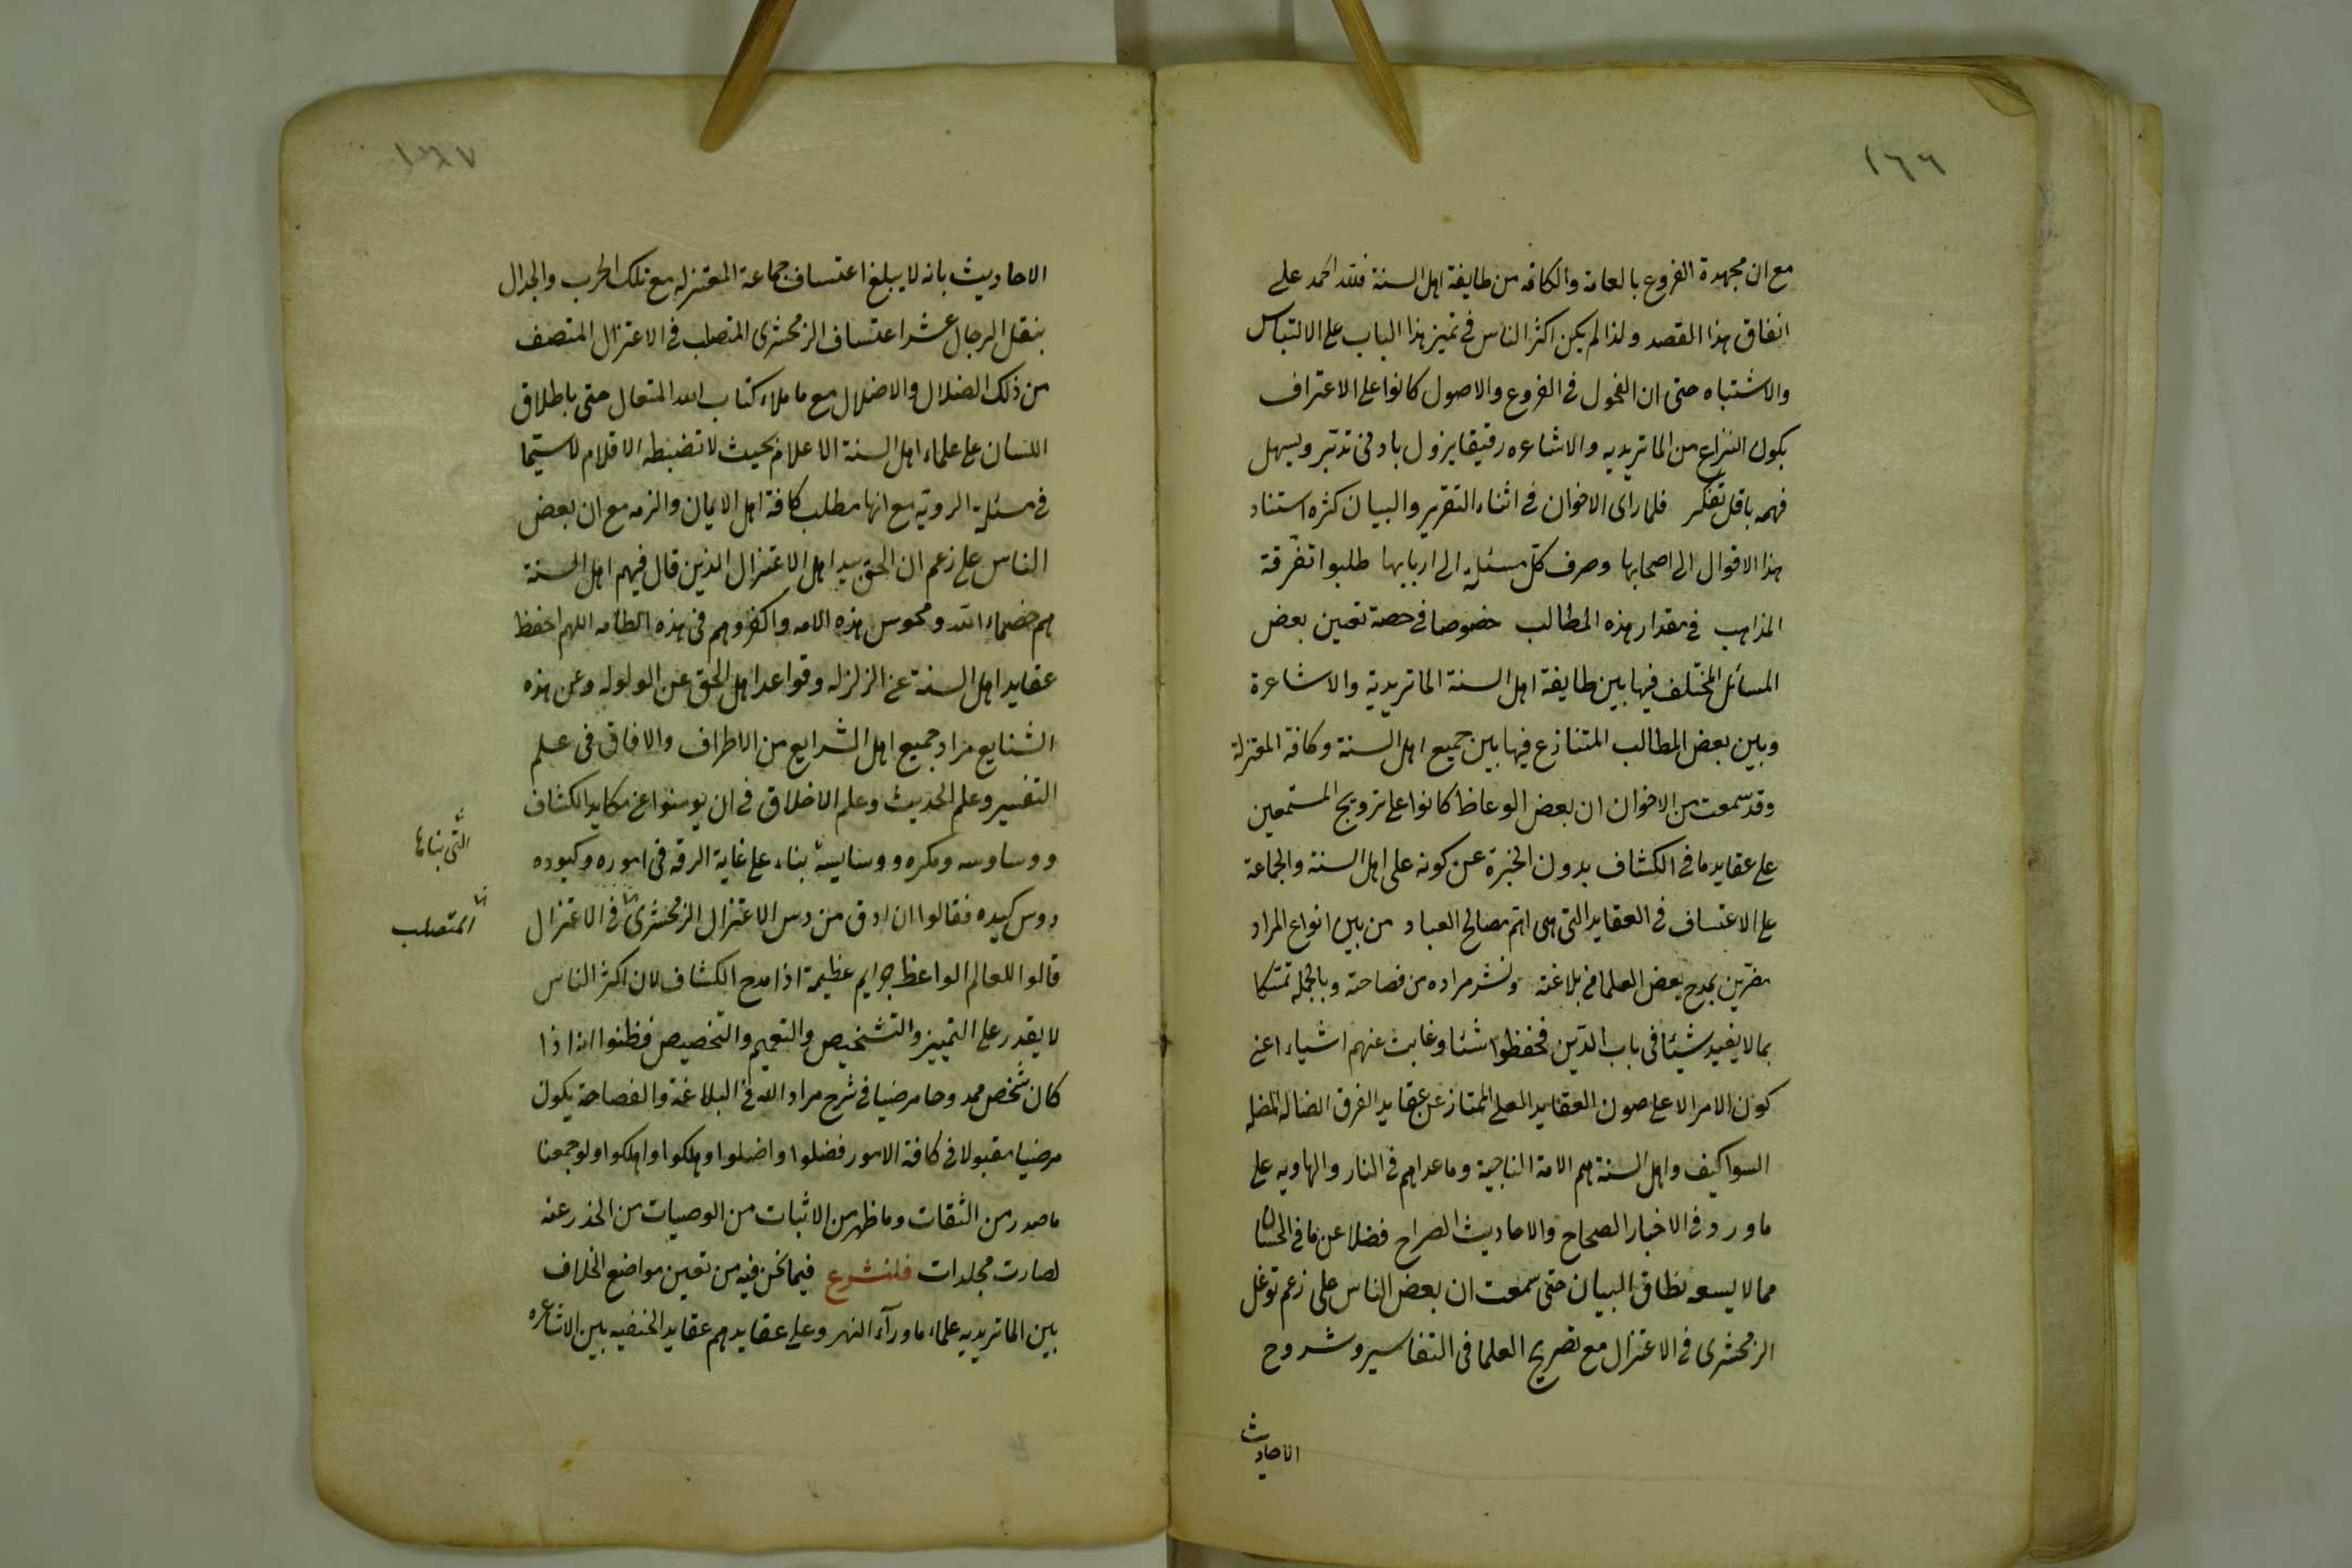 ١٦٦
مع ان مجهدة الفروع بالعامة والكافه من طايفة اهل السنة فلله الحمد على
اتفاق هذا القصد ولذا لم يكن اكثر الناس فى تميز هذا الباب على الالتباس
والاشتباه حتى ان الفحول فى الفروع والاصول كانوا على الاعتراف
بكون النزاع من الماتريديه والاشاعره رقيقا يزول بادنى تدبّر ويسهل
فهمه باقل تفكر فلما راى الاخوان فى اثناء التقرير والبيان كثره استناد
هذا الاقوال الى اصحابها وصرف كلّ مسئلة الى اربابها طلبوا تفرقة
المذاهب فى مقدار هذه المطالب خصوصا فى حصة تعين بعض
المسائل المختلف فيها بين طايفة اهل السنة الماتريدية والاشاعرة
وبين بعض المطالب المتنازع فيها بين جميع اهل السنة وكافة المعتزلة
وقد سمعت من الاخوان ان بعض الوعاظ كانوا على ترويج المستمعين
على عقايد ما فى الكشاف بدون الخبرة عن كونه على اهل السنة والجماعة
على الاعتساف فى العقايد التى هى اتم مصالح العباد من بين انواع المراد
مغترّين بمدح بعض العلما فى بلاغته ونشر مراده من فصاحته وبالجمله تمسّكا
بما لا يفيد شيئا فى باب الدّين فحفظوا شئا وغابت عنهم اشياء اعنى
كون الامر الا على صون العقايد العلى الممتاز عن عقايد الفرق الضاله المضله
السوا كيف واهل السنة هم الامة الناجية وما عداهم فى النار والهاويه على
ما ورد فى الاخبار الصحاح والاحاديث الصراح فضلا عن ما فى الحسان
مما لا يسعه نطاق البيان حتى سمعت ان بعض الناس على زعم توغل
الزمخشرى فى الاعتزال مع تصريح العلما فى التفاسير وشروح
الاحاديث
١٦٧
الاحاديث بانه لا يبلغ اعتساف جماعة المعتزله مع تلك الحرب والجدال
بنقل الرجال عشر اعتساف الزمخشرى المتصلب فى الاعتزال المتصف
من ذلك الضلال والاضلال مع ما ملاء كتاب الله المتعال حتى باطلاق
اللسان على علماء اهل السنة الاعلام بحيث لا تضبطه الاقلام لا سيّما
فى مسئلة الروية مع انها مطلب كافة اهل الايمان والزمه مع ان بعض
الناس على زعم ان الحق بيد اهل الاعتزال الذين قال فيهم اهل السنة
هم خصماء الله ومجوس هذه الامه واكفروهم فى هذه الطامه اللهم احفظ
عقايد اهل السنة عن الزلزله وقواعد اهل الحق عن الولوله وعن هذه
الشنايع مراد جميع اهل الشرايع من الاطراف والافاق فى علم
التفسير وعلم الحديث وعلم الاخلاق فى ان يوسنوا عن مكايد الكشاف
ووساوسه ومكره ووسايسه بناء على غاية الرقه فى اموره وكيوده
التى بناها
ودس كيده فقالوا ان ادق من دس الاعتزال الزمخشرى فى الاعتزال
المتصلب
قالوا للعالم الواعظ جرايم عظيمة اذا مدح الكشاف لان اكثر الناس
لا يقدر على التمييز والتشخيص والتعميم والتخصيص فظنوا انه اذا
كان شخص ممدوحا مرضيا فى شرح مراد الله فى البلاغة والفصاحة يكون
مرضيا مقبولا فى كافة الامور فضلوا واضلوا وهلكوا واهلكوا ولو جمعنا
ما صدر من الثقات وما ظهر من الاثبات من الوصيات من الحذر عنه
لصارت مجلدات فلنشرع فيما نحن فيه من تعين مواضع الخلاف
بين الماتريديه علماء ما ورآء النهر وعلى عقايدهم عقايد الحنفيه بين الاشاعره